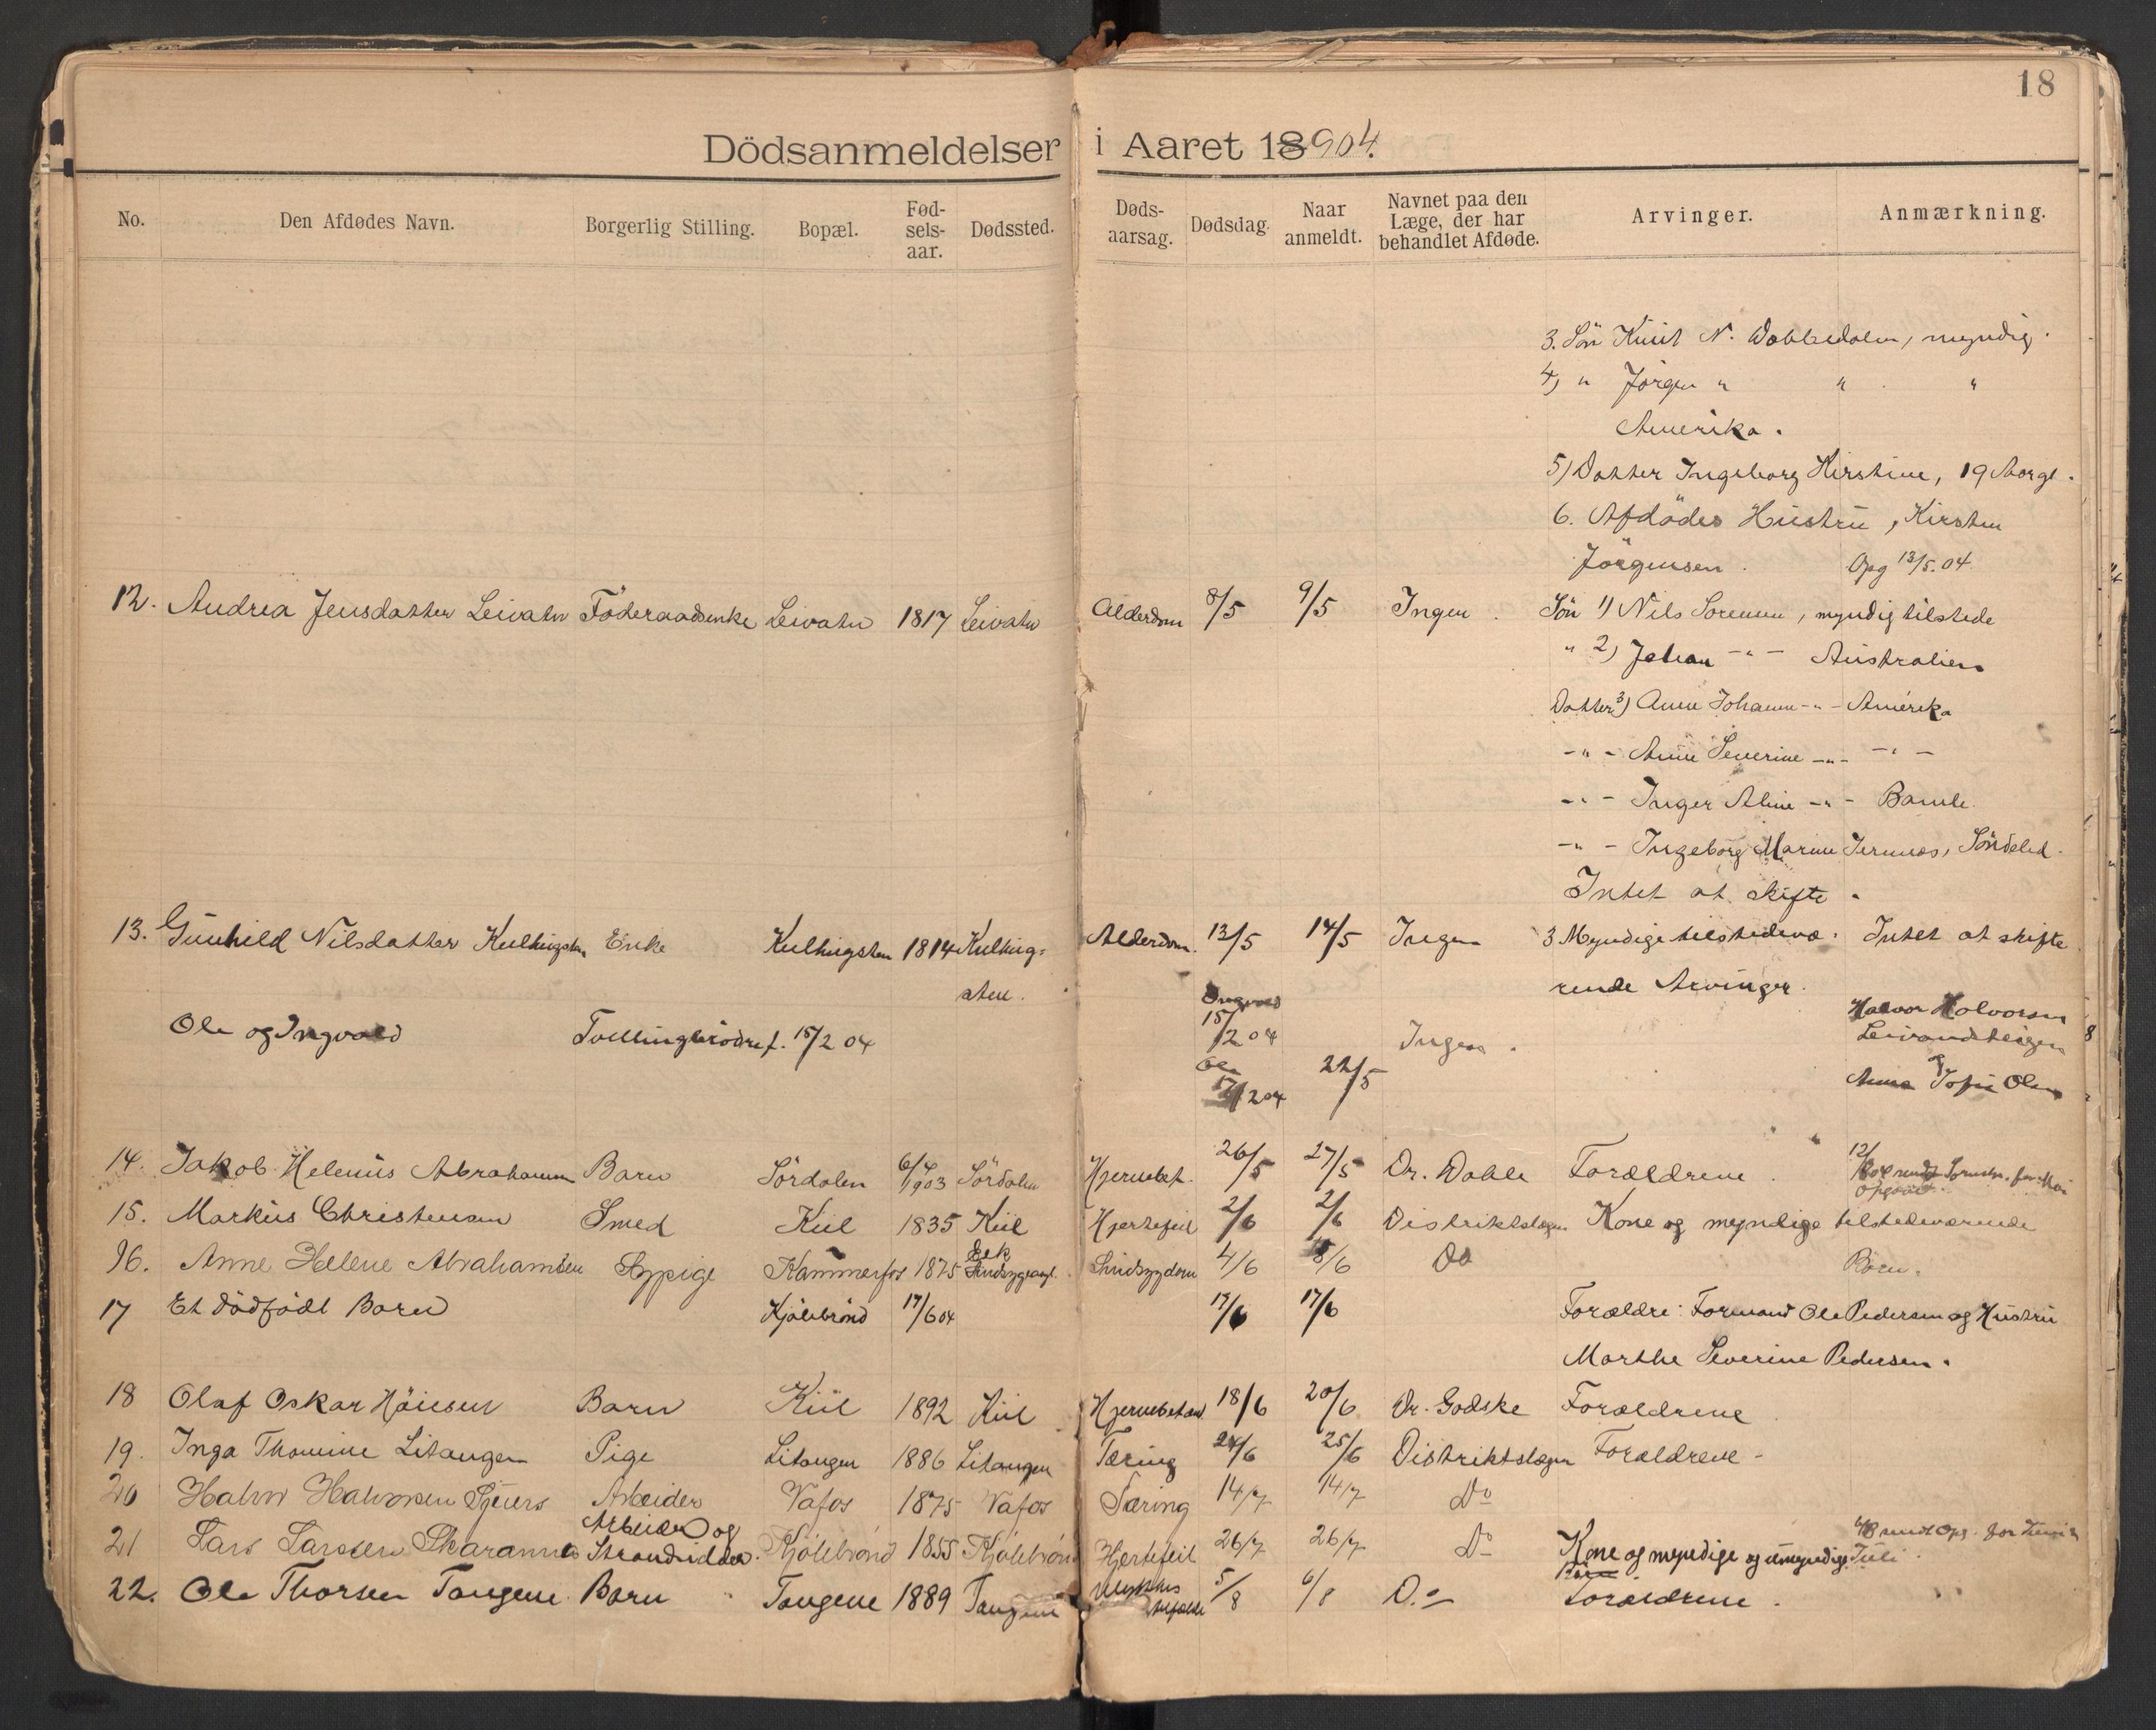 18
Dödsanmeldelser i Aaret 18904.
No. Den Afdødes Navn. Borgerlig Stilling. Bopæl. Fød-sels-aar. Dødssted. Døds-aarsag. Dødsdag. Naar anmeldt. Navnet paa den Læge, der har behandlet Afdøde. Arvinger. Anmærkning.
3. Sön Knut N. Dobbedalen, myndig.
4) " Jörgen " " "
Amerika.
5) Datter Ingeborg Kirstine, 19 Aar gl.
6. Afdödes Hustru, Kirsten
Jörgensen. Opg 13/5. 04.
12. Andrea Jensdatter Leivatn Föderaadsenke Leivatn 1817 Leivatn Alderdom 8/5 9/5 Ingen. Sön 1) Nils Sorensen, myndig tilstede
" 2) Johan -"- Australien
Datter 3) Anne Johanne -"- Amerika
-"- Anne Severine -"- -"-
-"- Inger Aline -"- Bamle.
-"- Ingeborg Marine Jernnæs, Söndeled.
Intet at skifte.
13. Gunhild Nilsdatter Kulhugsten Enke Kulhugsten 1814 Kulhug=
sten. Alderdom. 13/5 14/5 Ingen 3 Myndige tilstedevæ. Intet at skifte
rende Arvinger.
Ole og Ingvald Tvillingbrödre f. 15/2 04 Ingvald 15/2 04 Ingen. Halvor Halvorsen
Ole 17/2 04 22/5 og
Anna Sofie Olsen
14. Jakob Helenius Abrahamsen Barn Sördalen 6/4 1903 Sördalen Hjernebet. 26/5 27/5 Dr. Dahle Forældrene.
15. Markus Christensen Smed Kiil 1835 Kiil Hjertefeil 2/6 2/6 Distriktslægen Kone og myndige tilstedeværende
Börn.
16. Anne Helene Abrahamsen Sypige Kammerfos 1875 Eek Sindsygeasyl. Sindsygdom 4/6 8/6 Do
17 Et dödfödt Barn Kjölebrönd 17/6 04 17/6 17/6 Forældre: Formand Ole Pedersen og Hustru
Marthe Severine Pedersen.
18 Olaf Oskar Höiesen Barn Kiil 1892 Kiil Hjernebetænd. 18/6 20/6 Dr. Godske Forældrene
19. Inga Thomine Litangen Pige Litangen 1886 Litangen Tæring 24/6 25/6 Distriktslægen Forældrene -
20 Halvor Halvorsen Arbeider Vafos 1875 Vafos Tæring 14/7 14/7 Do
21 Lars Larssen Skarannes Arbeider og Strandsidder. Kjölebrönd 1855 Kjölebrönd Hjertefeil 26/7 26/7 Do Kone og myndige og umyndige
Börn
22. Ole Thorsen Tangene Barn Tangene 1889 Tangene 5/8 6/8 Do Forældrene.